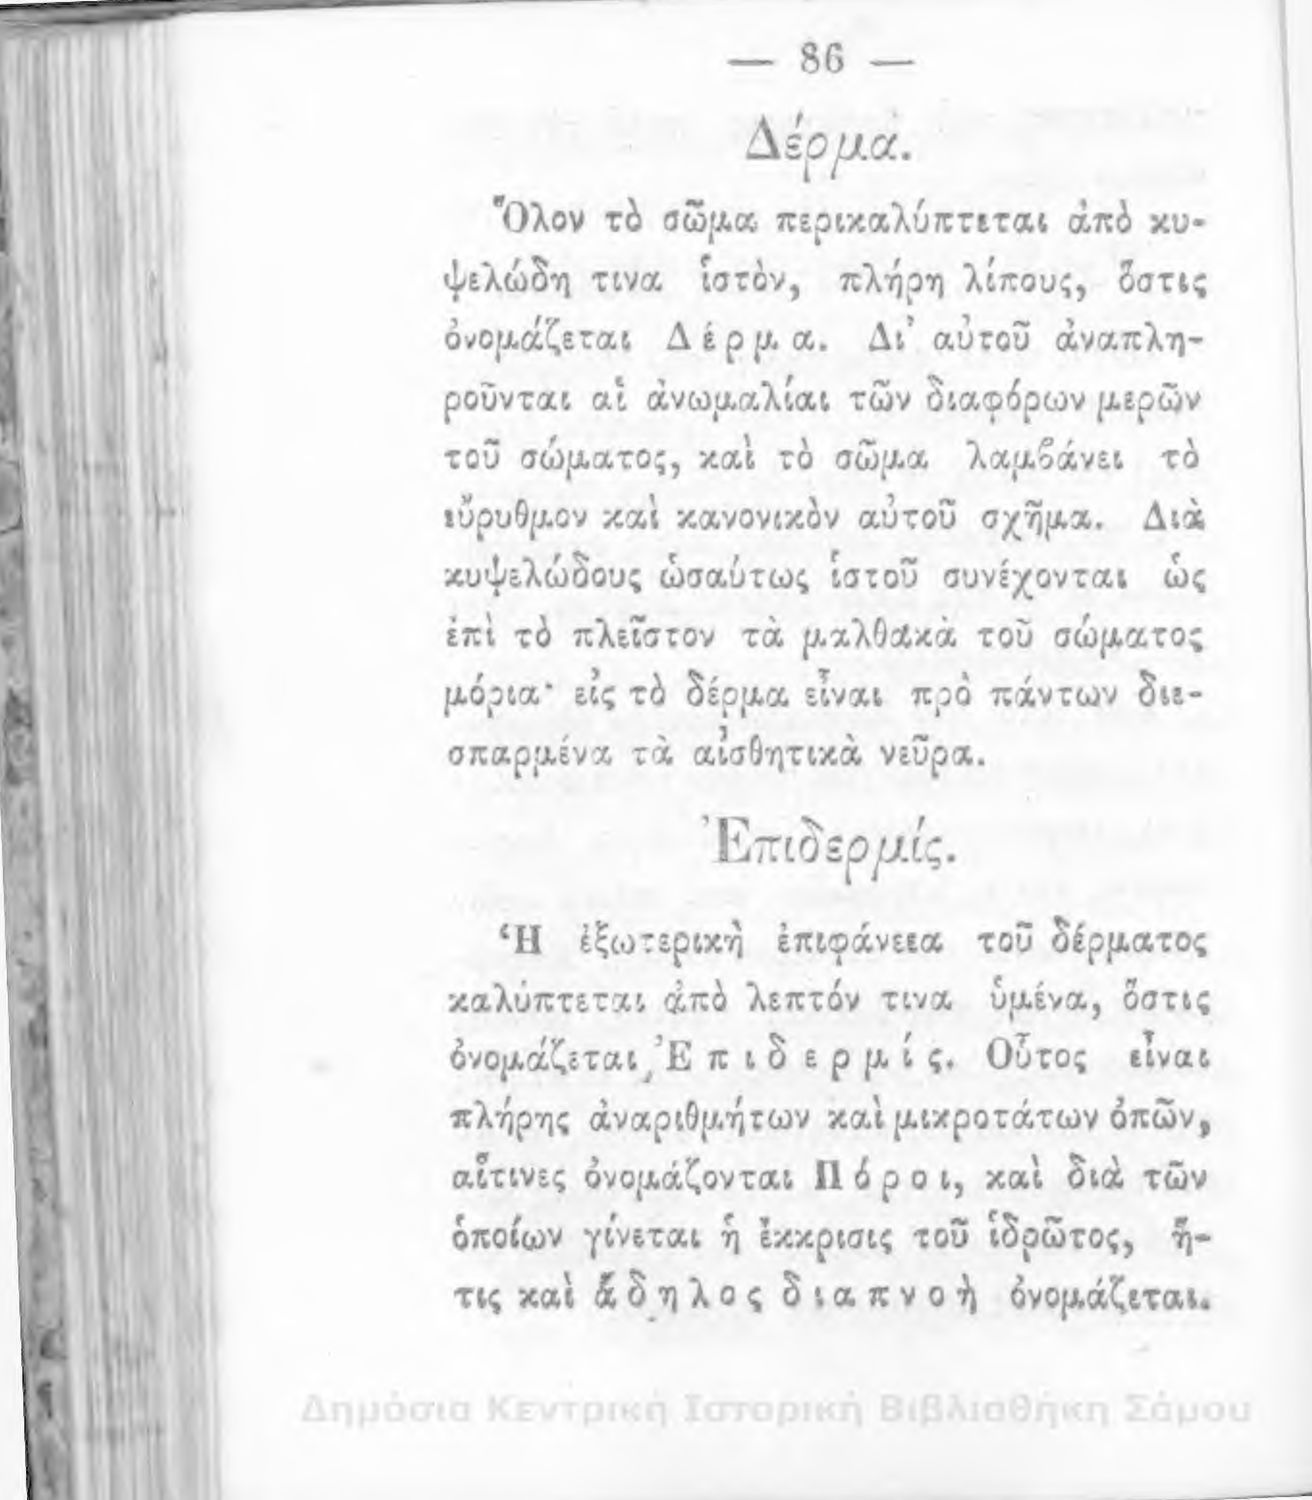 — 86 —
Δέρμα.
Ὅλον τὸ σῶμα περικαλύπτεται ἀπὸ κυ-
ψελώδη τινα ἱστὸν, πλήρη λίπους, ὅστις
ὀνομάζεται Δέρμα. Δι' αὐτοῦ ἀναπλη-
ροῦνται αἱ ἀνωμαλίαι τῶν διαφόρων μερῶν
τοῦ σώματος, καὶ τὸ σῶμα λαμβάνει τὸ
εὔρυθμον καὶ κανονικὸν αὐτοῦ σχῆμα. Διὰ
κυψελώδους ὡσαύτως ἱστοῦ συνέχονται ὡς
ἐπὶ τὸ πλεῖστον τὰ μαλθακὰ τοῦ σώματος
μόρια· εἰς τὸ δέρμα εἶναι πρὸ πάντων διε-
σπαρμένα τὰ αἰσθητικὰ νεῦρα.
Ἐπιδερμίς.
Ἡ ἐξωτερικὴ ἐπιφάνεια τοῦ δέρματος
καλύπτεται ἀπὸ λεπτόν τινα ὑμένα, ὅστις
ὀνομάζεται Ἐπιδερμίς. Οὗτος εἶναι
πλήρης ἀναριθμήτων καὶ μικροτάτων ὀπῶν,
αἵτινες ὀνομάζονται Πόροι, καὶ διὰ τῶν
ὁποίων γίνεται ἡ ἔκκρισις τοῦ ἱδρῶτος, ἥ-
τις καὶ ἄδηλος διαπνοὴ ὀνομάζεται.
Δημόσια Κεντρική Ιστορική Βιβλιοθήκη Σάμου